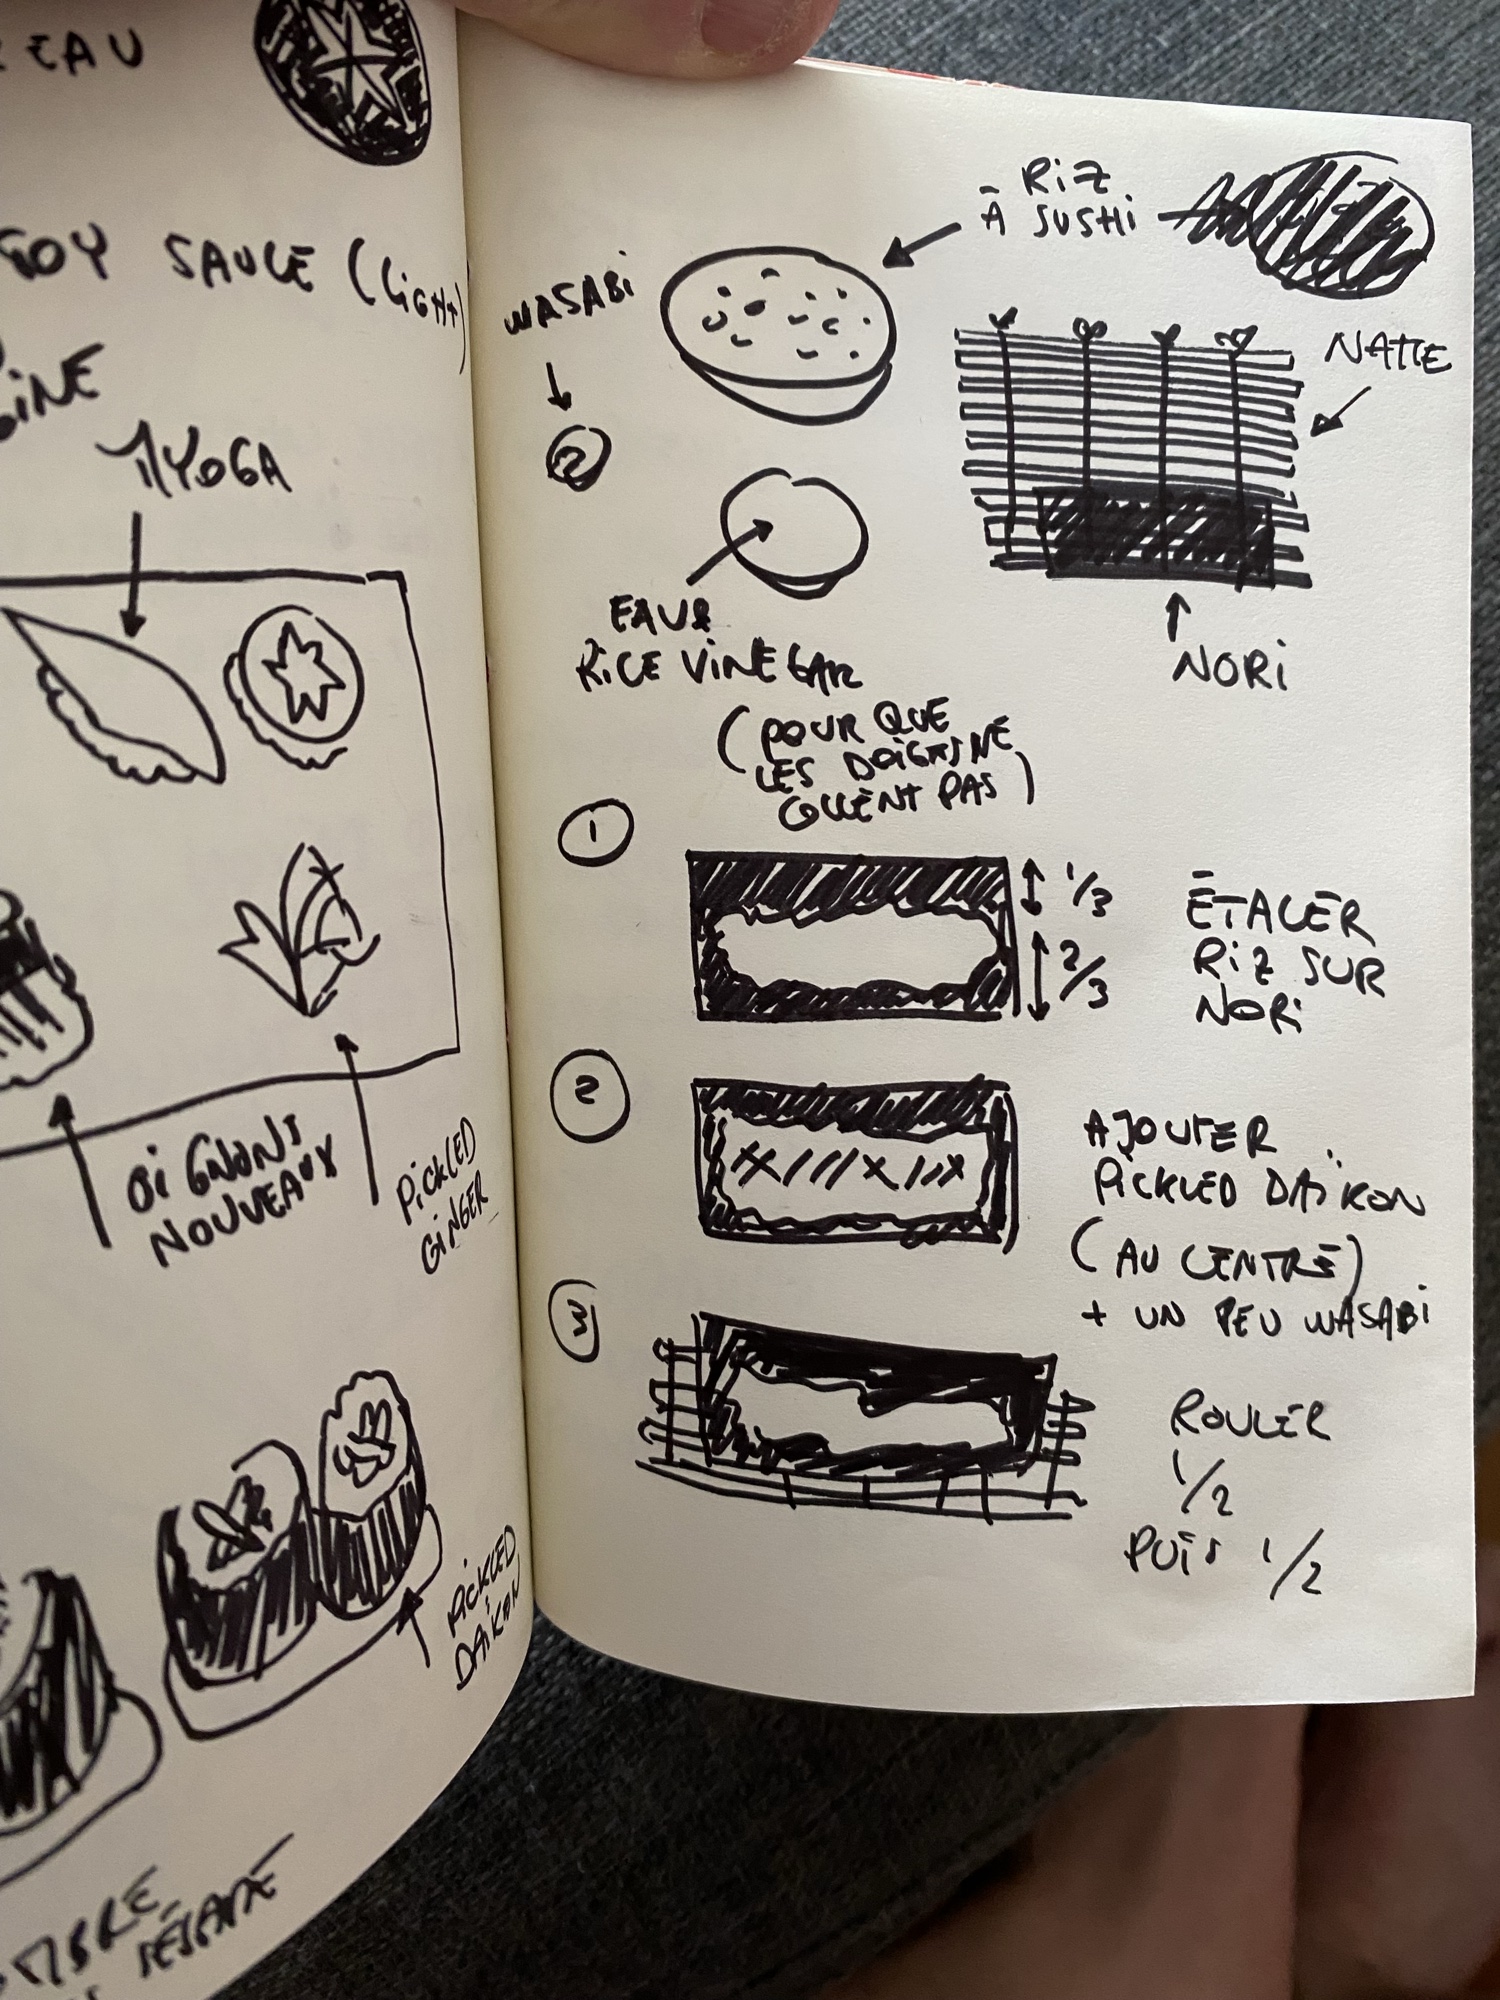 EAU
SOY SAUCE (LIGHT)
MYOGA
OIGNONS
NOUVEAUX
PICKLED
GINGER
PICKLED
DAÏKON
RIZ
À SUSHI
WASABI
NATTE
EAU &
RICE VINEGAR
(POUR QUE
LES DOIGTS NE
COLLENT PAS)
NORI
1
1/3
2/3
ÉTALER
RIZ SUR
NORI
2
AJOUTER
PICKLED DAÏKON
(AU CENTRE)
+ UN PEU WASABI
3
ROULER
1/2
PUIS 1/2